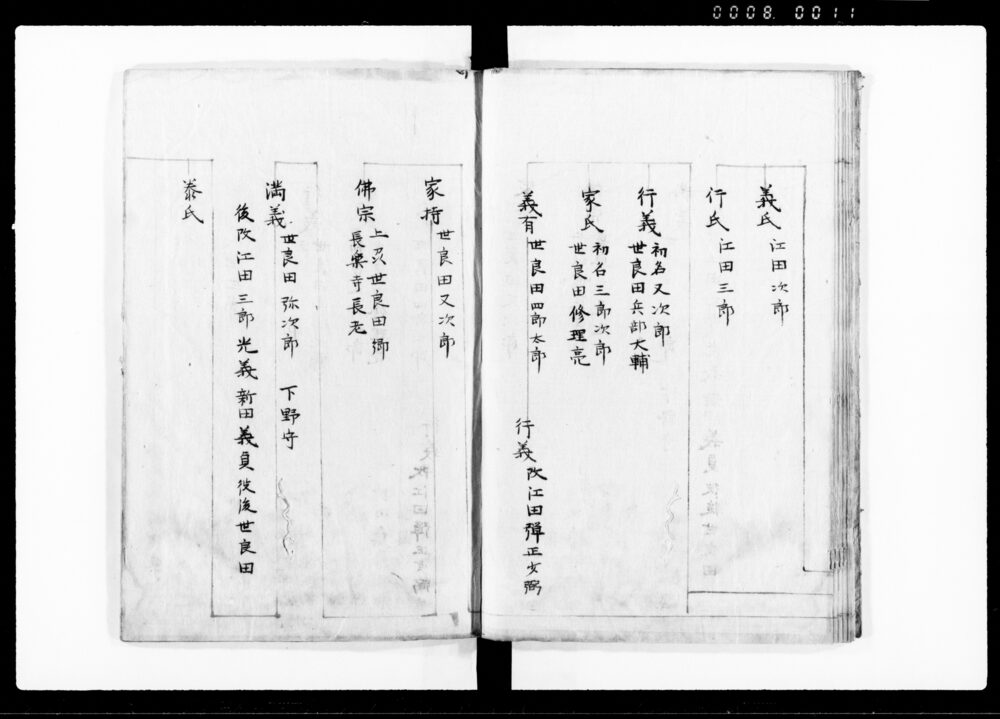 0008 0011
義氏 江田次郎
行氏 江田三郎
行義 初名又次郎
世良田兵部大輔
家氏 初名三郎次郎
世良田修理亮
義有 世良田四郎太郎
行義 改江田弾正少弼
家持 世良田又次郎
佛宗 上及世良田郷
長楽寺長老
満義 世良田弥次郎 下野守
後改江田三郎光義新田義貞彼後世良田
泰氏